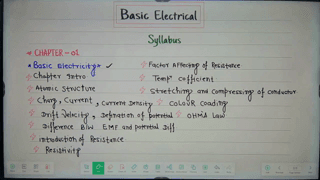 Basic Electrical
Syllabus
* CHAPTER-01
* Basic Electricity ✓
Chapter Intro
Atomic Structure
Charg, Current, Current Density
Drift Velocity, Defination of potential
Difference B/W EMF and potential Diff
introduction of Resistance
Resistivity
Factor Affecting of Resistance
Temp Cofficient
Stretching and Compressing of conductor
COLOUR Coading
OHM's Law